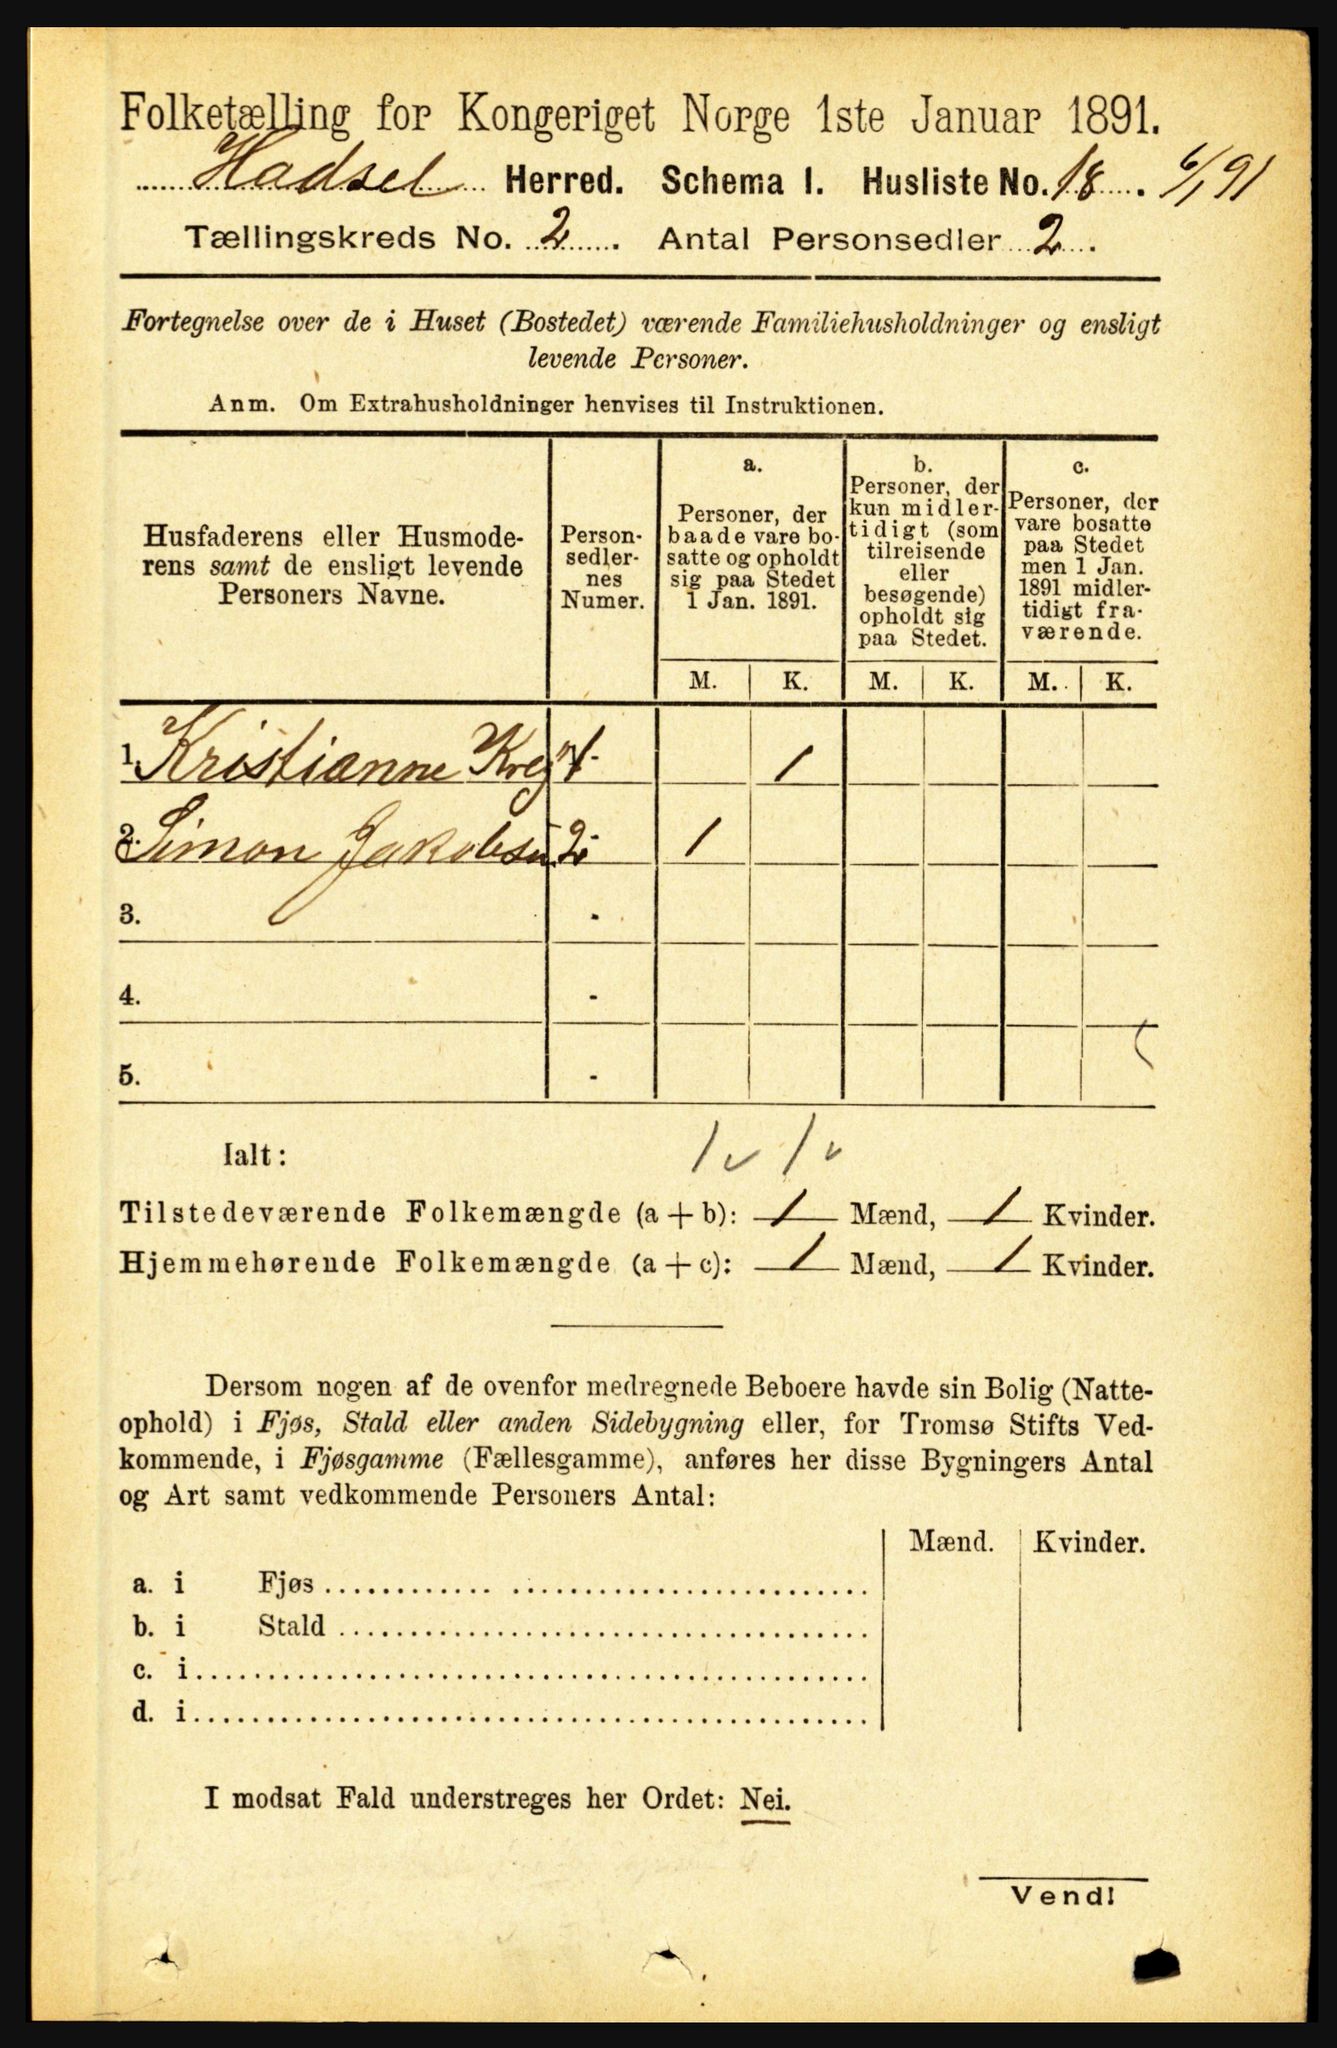 Folketælling for Kongeriget Norge 1ste Januar 1891.
Hadsel Herred. Schema I. Husliste No. 18. 6/1 91
Tællingskreds No. 2. Antal Personsedler 2.
Fortegnelse over de i Huset (Bostedet) værende Familiehusholdninger og ensligt
levende Personer.
Anm. Om Extrahusholdninger henvises til Instruktionen.
Husfaderens eller Husmode-
rens samt de ensligt levende
Personers Navne.
Person-
sedler-
nes
Numer.
a.
Personer, der
baade vare bo-
satte og opholdt
sig paa Stedet
1 Jan. 1891.
b.
Personer, der
kun midler-
tidigt (som
tilreisende
eller
besøgende)
opholdt sig
paa Stedet.
c.
Personer, der
vare bosatte
paa Stedet
men 1 Jan.
1891 midler-
tidigt fra-
værende.
M. K. M. K. M. K.
1. Kristianne 1 1
2. Simon Jakobsen 2 1
3.
4.
5.
Ialt: 1 1
Tilstedeværende Folkemængde (a + b): 1 Mænd, 1 Kvinder.
Hjemmehørende Folkemængde (a + c): 1 Mænd, 1 Kvinder.
Dersom nogen af de ovenfor medregnede Beboere havde sin Bolig (Natte-
ophold) i Fjøs, Stald eller anden Sidebygning eller, for Tromsø Stifts Ved-
kommende, i Fjøsgamme (Fællesgamme), anføres her disse Bygningers Antal
og Art samt vedkommende Personers Antal:
Mænd. Kvinder.
a. i Fjøs
b. i Stald
c. i
d. i
I modsat Fald understreges her Ordet: Nei.
Vend!